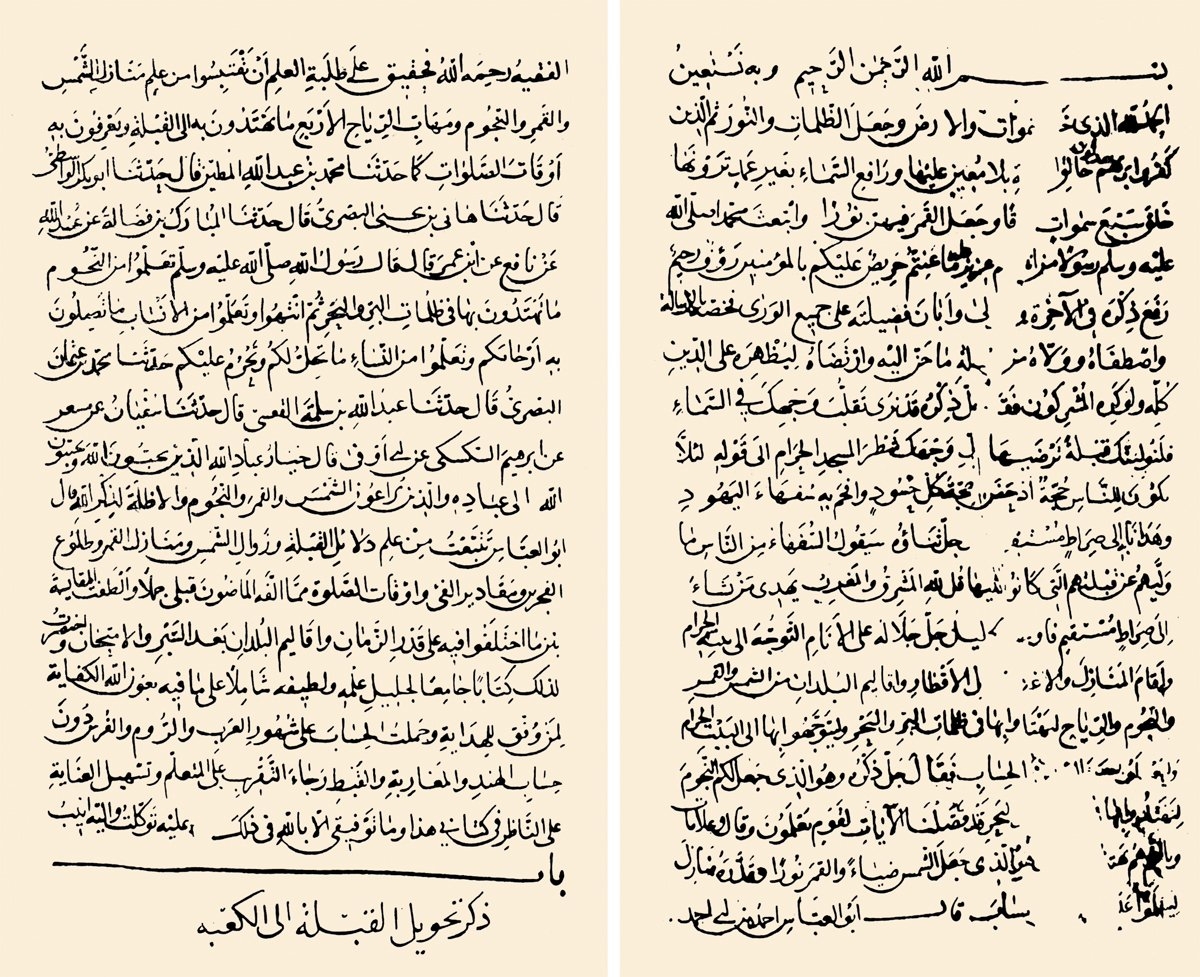 بسم الله الرحمن الرحيم وبه نستعين
الحمد لله الذي خـ ـموات والارض وجعل الظلمات والنور ثم الذين
كفروا بربهم خالق بلا معين عليها ورافع السماء بغير عمد ترونها
خلق سبع سموات وجعل القمر فيهن نورا وابتعث محمدا صلى الله
عليه وسلم رسولا من عزيز ما عنتم حريص عليكم بالمؤمنين رؤف رحيم
رفع ذكره في الآخرة و لى وابان فضيلته على جميع الورى
واصطفاه وولاه من ـلة ما حن اليه وارتضاه ليظهره على الدين
كله ولو كره المشركون فقـ ـل ذكره قد نرى تقلب وجهك في السماء
فلنولينك قبلة ترضيها ـل وجهك شطر المسجد الحرام الى قوله لئلا
يكون للناس حجة حجة كل حسود والحم به سفهاء اليهود
وهدانا الى صراط مستقيم جل ثناؤه سيقول السفهاء من الناس ما
وليهم عن قبلتهم التي كانوا عليها قل لله المشرق والمغرب يهدي من يشاء
الى صراط مستقيم جل جلاله على الانام التوجه الى بيته الحرام
واقام المنازل الاقطار واقاليم البلدان من الشمس والقمر
والنجوم والرياح ليهتدوا بها في ظلمات البر والبحر وليتوجهوا بها الى البيت الحرام
الحساب فقال جل ذكره وهو الذي جعل لكم النجوم
لتهتدوا بها ـبحر قد فصلنا الآيات لقوم يعلمون وقال وعلامات
وبالنجم هم يهتد هو الذي جعل الشمس ضياء والقمر نورا وقدره منازل
لتعلموا عد قال ابو العباس احمد بن ابي احمد
الفقيه رحمه الله فحقيق على طلبة العلم ان يقتبسوا من علم منازل الشمس
والقمر والنجوم ومهاب الرياح الاربع ما يهتدون به الى القبلة ويعرفون به
اوقات الصلوات كما حدثنا محمد بن عبد الله المطين قال حدثنا ابو بكر الواسطي
قال حدثنا هانئ بن يحيى البصري قال حدثنا المبارك بن فضالة عن عبيد الله
عن نافع عن ابن عمر قال قال رسول الله صلى الله عليه وسلم تعلموا من النجوم
ما تهتدون بها في ظلمات البر والبحر ثم انتهوا وتعلموا من الانساب ما تصلون
به ارحامكم وتعلموا من النساء ما يحل لكم ويحرم عليكم حدثنا محمد بن عثمان
البصري قال حدثنا عبد الله بن سلمة القعنبي قال حدثنا سفيان عن مسعر
عن ابرهيم السكسكي عن ابن ابي اوفى قال خيار عباد الله الذين يحببون الله
الله الى عباده والذين يراعون الشمس والقمر والنجوم والاظلة لذكر الله قال
ابو العباس تتبعت من علم دلائل القبلة وزوال الشمس ومنازل القمر وطلوع
الفجرين ومقادير الفيء واوقات الصلوة مما الفه الماضون قبلي جملا والطفت المقايسة
بين ما اختلفوا فيه على قدر الزمان واقاليم البلدان بعد السير والامتحان واختصرت
لذلك كتابا جامعا لجليل علمه ولطيفه شاملا على ما فيه بعون الله الكفاية
لمن وفق للهداية وجعلت الحساب على شهور العرب والروم والفرس دون
حساب الهند والمغاربة والقبط رجاء التقرب على المتعلم وتسهيل العناية
على الناظر في كتابي هذا وما توفيقي الا بالله في ذلك عليه توكلت واليه انيب
باب
ذكر تحويل القبلة الى الكعبة